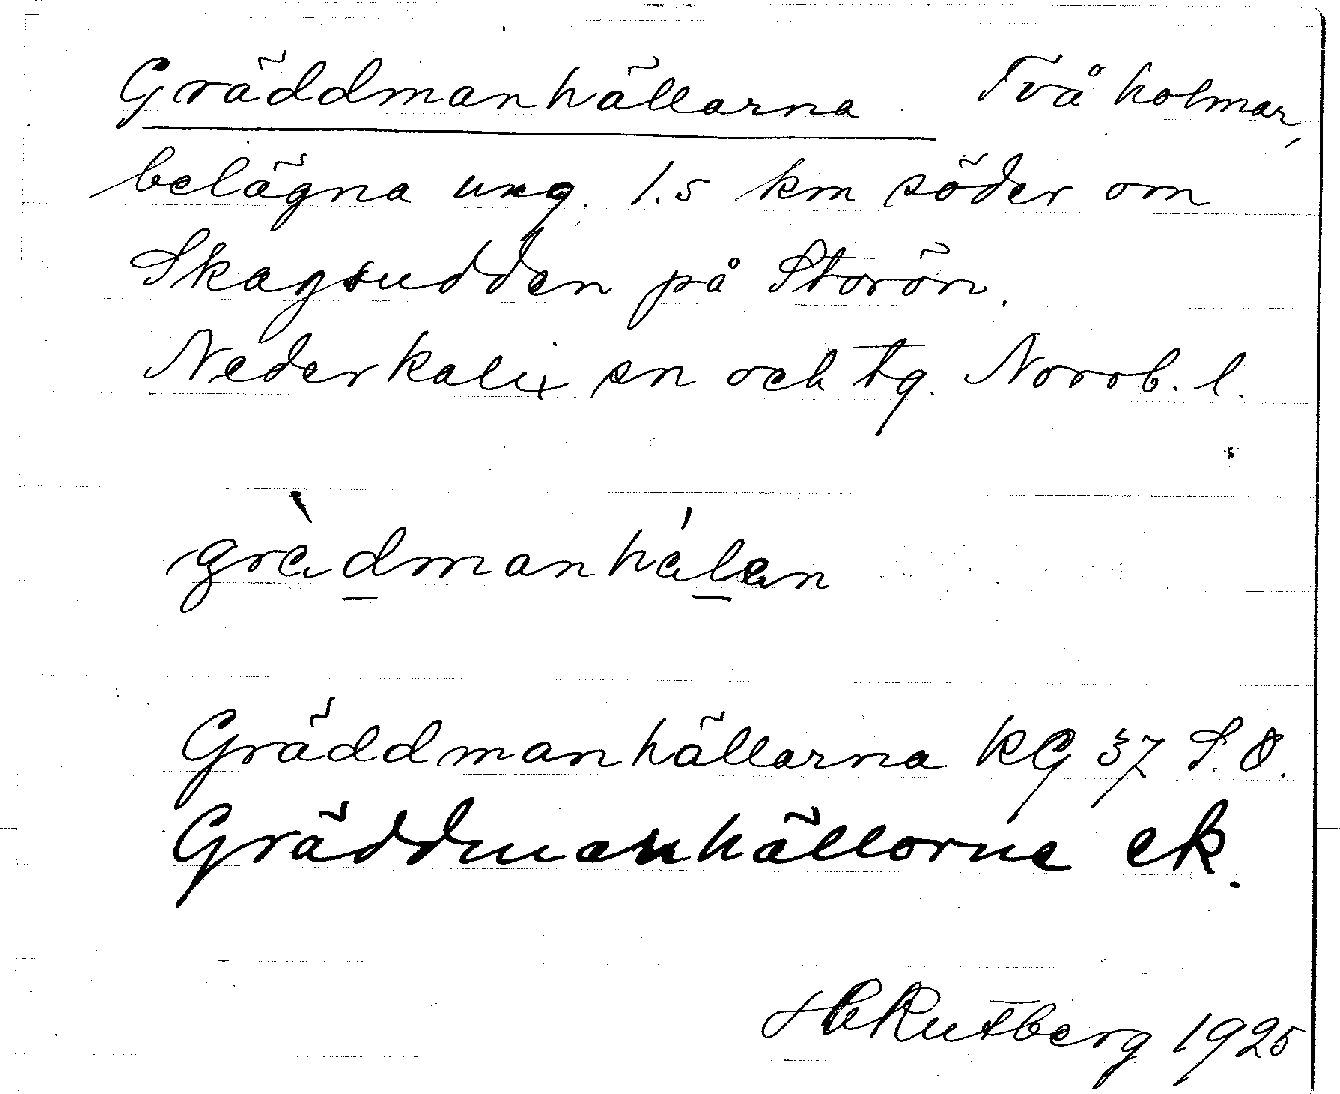 Gräddmanhällarna. Två holmar,
belägna ung. 1.5 km söder om
Skagsudden på Storön.
Nederkalix sn och tg. Norrb. l.
gràdmanhálan
Gräddmanhällarna KG 37 S.O.
Gräddmanhällorne ek.
H Rutberg 1925